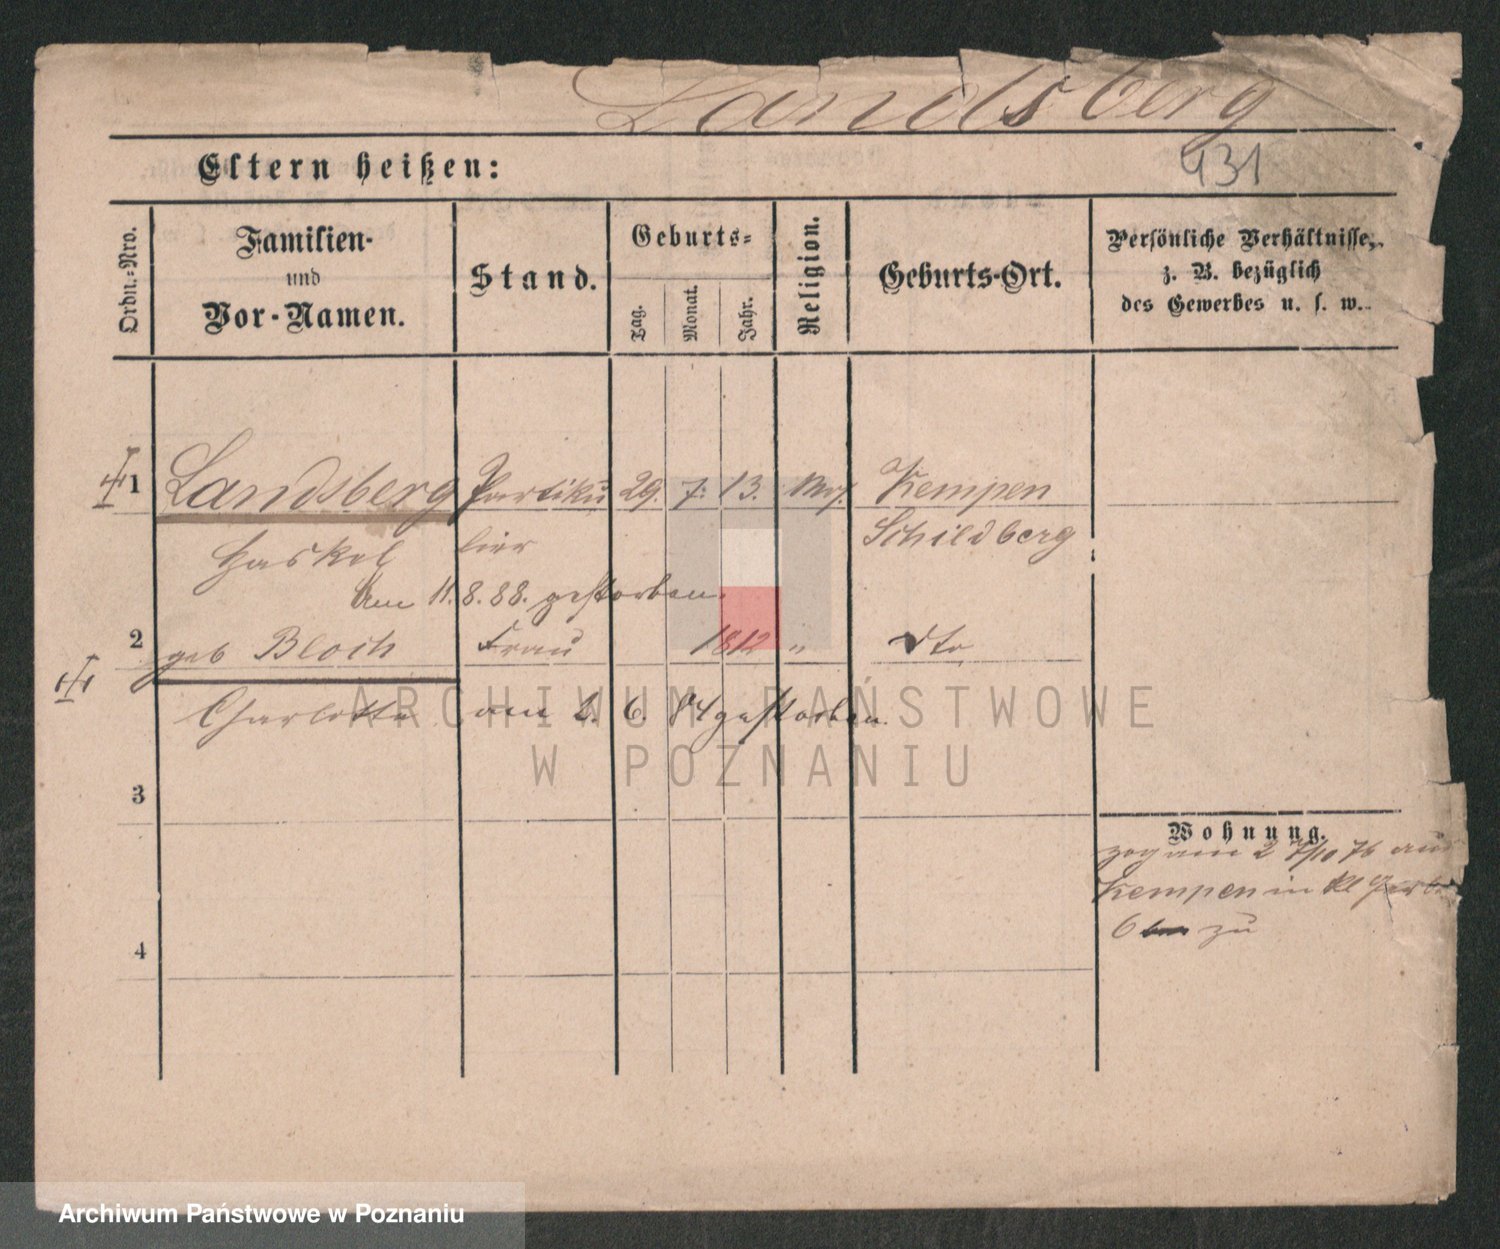 Landsberg
Eltern heißen:
431
Ordn.=Nro.
Familien-
und
Vor-Namen.
Stand.
Geburts=
Tag.
Monat.
Jahr.
Religion.
Geburts-Ort.
Persönliche Verhältnisse,
z. B. bezüglich
des Gewerbes u. s. w.
1 Landsberg Partiku 29. 7. 13. Mos. Kempen
Haskel lier Schildberg
Am 11. 8. 88. gestorben.
2 geb Bloch Frau 1812 " dto
Charlotte am 2. 6. 84 gestorben.
3
Wohnung.
zog am 2 76 aus
Kempen in kl Gerber
6 zu
4
ARCHIWUM PAŃSTWOWE
W POZNANIU
Archiwum Państwowe w Poznaniu